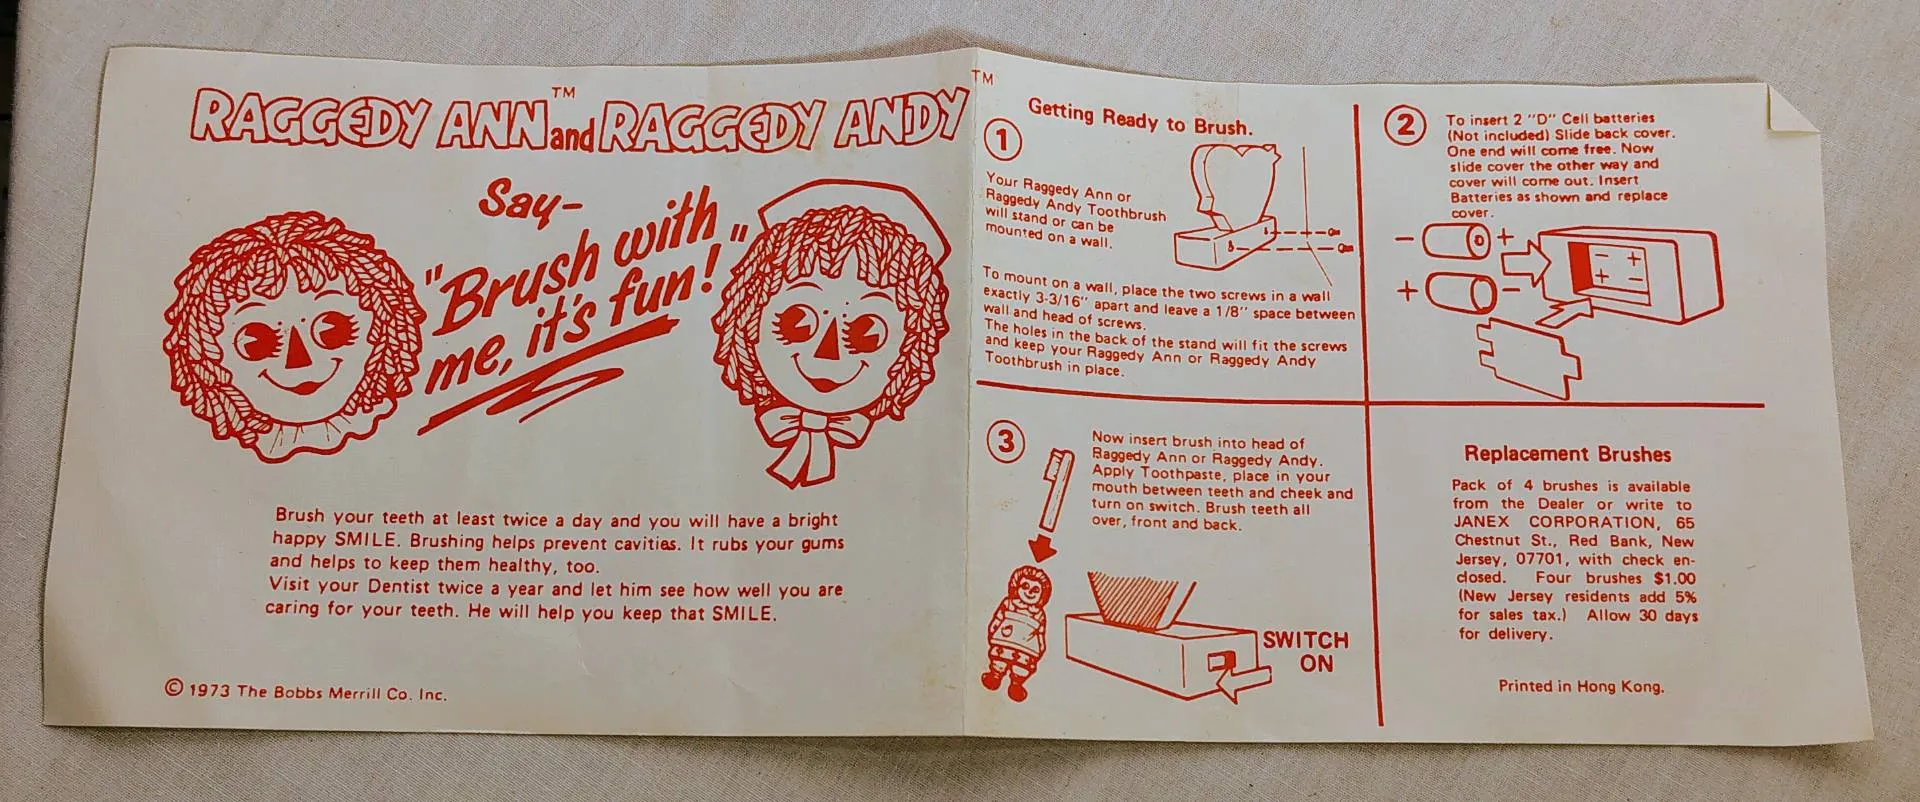 RAGGEDY ANN™ and RAGGEDY ANDY™
Say-
"Brush with
me, it's fun!"
Brush your teeth at least twice a day and you will have a bright
happy SMILE. Brushing helps prevent cavities. It rubs your gums
and helps to keep them healthy, too.
Visit your Dentist twice a year and let him see how well you are
caring for your teeth. He will help you keep that SMILE.
© 1973 The Bobbs Merrill Co. Inc.
Getting Ready to Brush.
1
Your Raggedy Ann or
Raggedy Andy Toothbrush
will stand or can be
mounted on a wall.
To mount on a wall, place the two screws in a wall
exactly 3-3/16" apart and leave a 1/8" space between
wall and head of screws.
The holes in the back of the stand will fit the screws
and keep your Raggedy Ann or Raggedy Andy
Toothbrush in place.
2
To insert 2 "D" Cell batteries
(Not included) Slide back cover.
One end will come free. Now
slide cover the other way and
cover will come out. Insert
Batteries as shown and replace
cover.
- +
+ -
- +
+ -
3
Now insert brush into head of
Raggedy Ann or Raggedy Andy.
Apply Toothpaste, place in your
mouth between teeth and cheek and
turn on switch. Brush teeth all
over, front and back.
SWITCH
ON
Replacement Brushes
Pack of 4 brushes is available
from the Dealer or write to
JANEX CORPORATION, 65
Chestnut St., Red Bank, New
Jersey, 07701, with check en-
closed. Four brushes $1.00
(New Jersey residents add 5%
for sales tax.) Allow 30 days
for delivery.
Printed in Hong Kong.